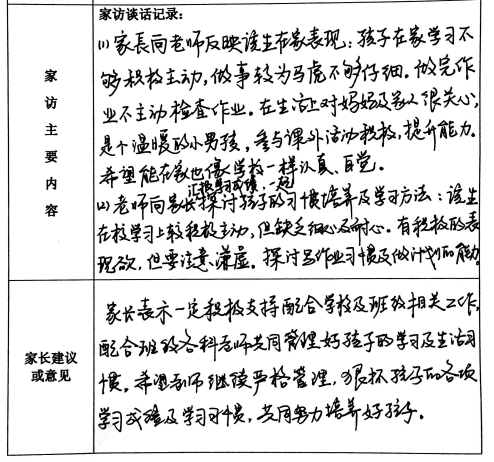 家访谈话记录:
家访主要内容
(1)家長向老师反映该生在家表现：孩子在家学习不
够积极主动，做事较为马虎不够仔细。做完作
业不主动检查作业。在生活上对妈妈及家人很关心，
是个温暖的小男孩，参与课外活动积极，提升能力。
希望能在家也像学校一样认真、自觉。
汇报学习成绩，一起
(2)老师向家长探讨孩子的习惯培养及学习方法：该生
在校学习上较积极主动，但缺乏细心及耐心。有积极的表
现欲，但要注意谦虚。探讨写作业习惯及做计划的能力
家长建议
或意见
家长表示一定积极支持配合学校及班级相关工作，
配合班级各科老师共同管理好孩子的学习及生活习
惯。希望老师继续严格管理，狠抓孩子的各项
学习成绩及学习习惯，共同努力培养好孩子。